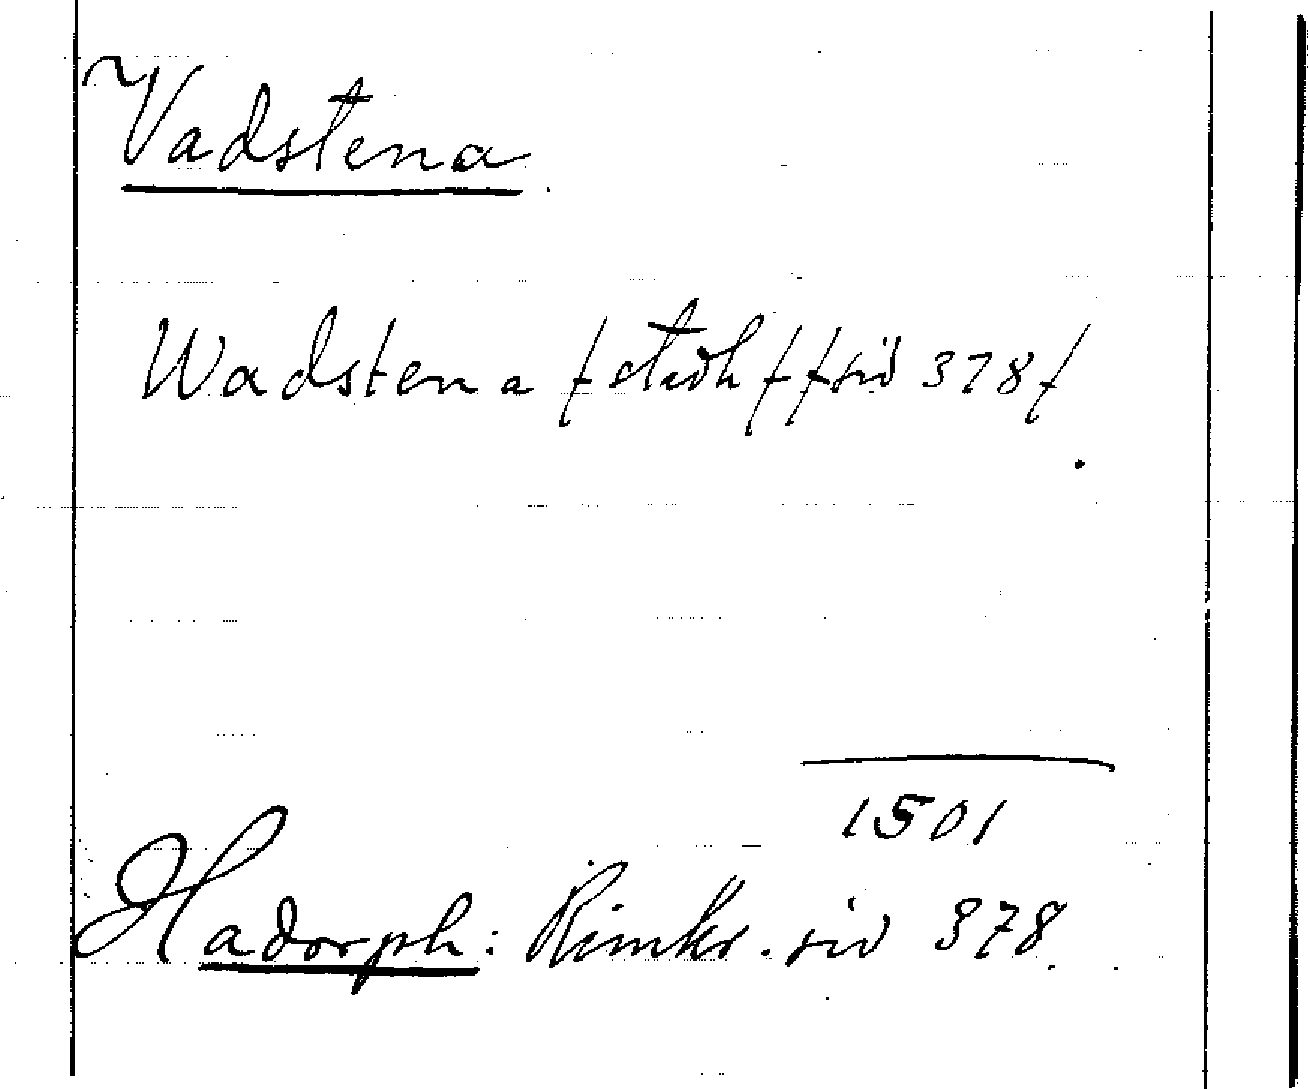 Vadstena
Wadstena /stadh/ /sid 378/
1501
Hadorph: Rimkr. sid 378.